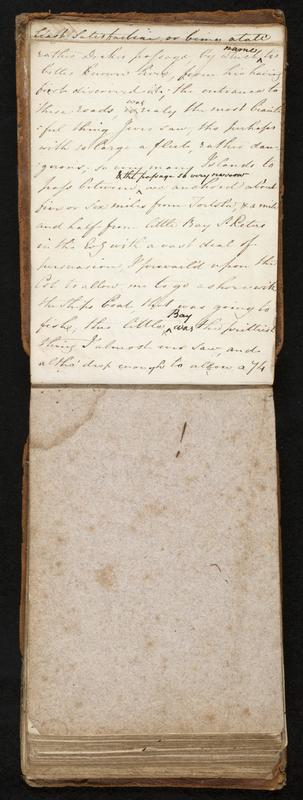 rather Drakes passage, by which name his
better known here, from his having
first discovered it; the entrance to
these roads, was realy the most beauti
=ful thing I ever saw, tho perhaps
with so large a fleet, rather dan-
gerous, so very many Islands to
pass between & the passage so very narrow, we anchored about
five or six miles from Tortola, & a mile
and half from little Bay St Peters
in the Evg with a vast deal of
persuasion, I prevail'd upon the
Col to allow me to go ashore with
the Ships boat that was going to
fish, this little Bay was the prettiest
thing I almost ever saw, and
altho' deep enough to allow a 74